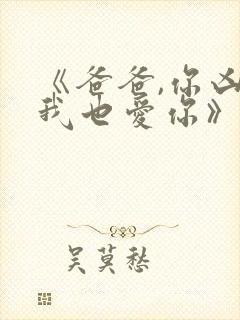 《爸爸,你凶
我也愛你》
吴莫愁